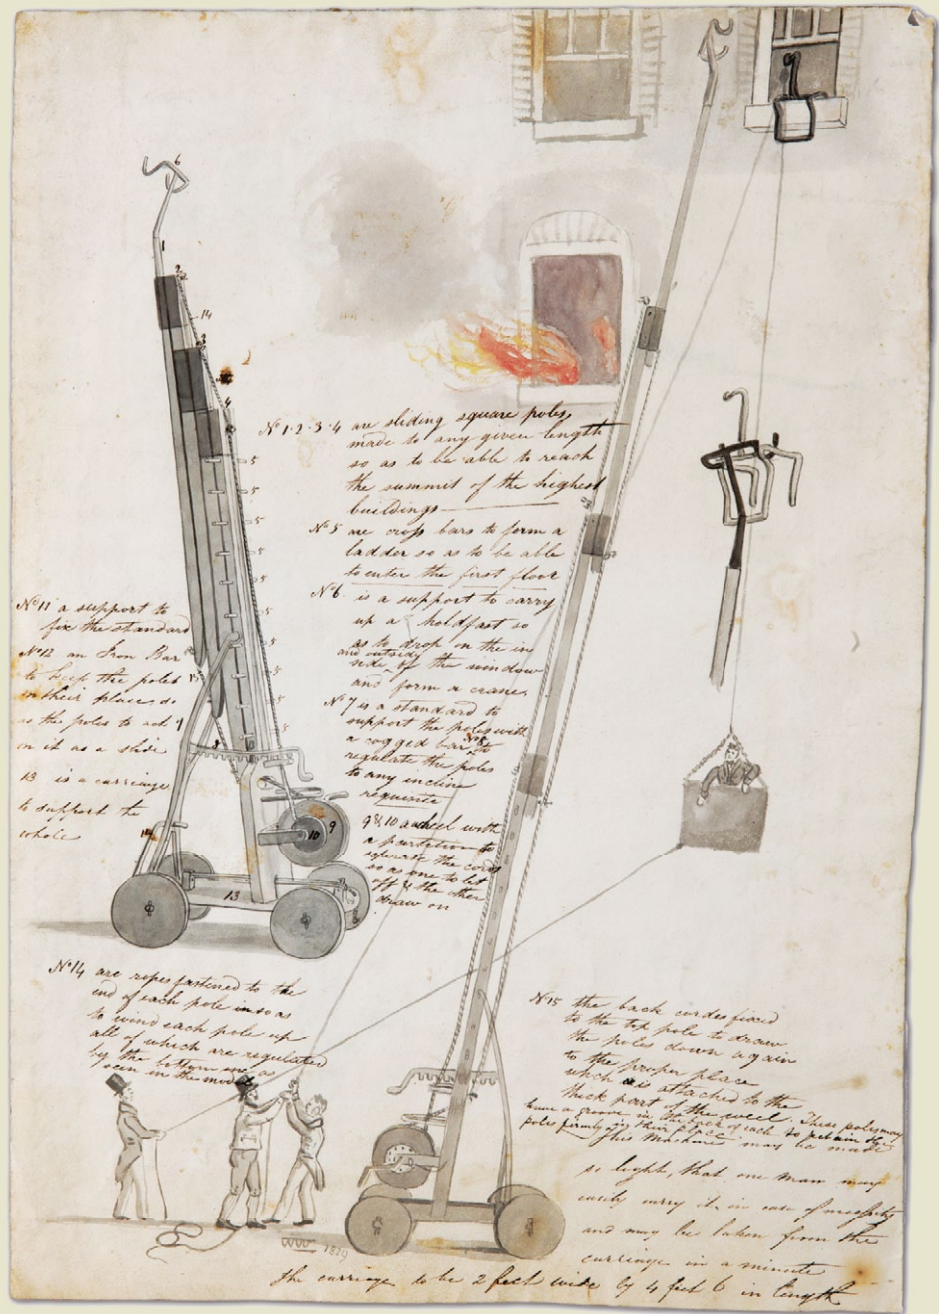 No 1.2.3.4 are sliding square poles
made to any given length
so as to be able to reach
the summit of the highest
buildings
No 5 are cross bars to form a
ladder so as to be able
to enter the first floor
No 6 is a support to carry
up a holdfast so
as to drop on the in
and outside
side of the window
and form a crane
No 7 is a standard to
support the poles with
a cogged bar No 8 to
regulate the poles
to any incline
requisite
9 & 10 a wheel with
a partition to
separate the cord
so as one to let
off & the other
draw on
No 11 a support to
fix the standard
No 12 an Iron Bar
to keep the poles
in their place so
as the poles to act
on it as a slide
13 is a carriage
to support the
whole
No 14 are ropes fastened to the
end of each pole in so as
to wind each pole up
all of which are regulated
by the bottom one as
seen in the model
No 15 the back cordes fixed
to the top pole to draw
the poles down again
to the proper place
which is attached to the
thick part of the weel. These poles may
have a groove in the back of each to retain the
poles firmly in their place
This Machine may be made
so light, that one man may
easily carry it in case of necessity
and may be taken from the
carriage in a minute
the carriage to be 2 feet wide by 4 feet 6 in length
WW 1829
6
1
2
14
3
4
5
5
5
5
5
5
5
5
5
8
9
10
13